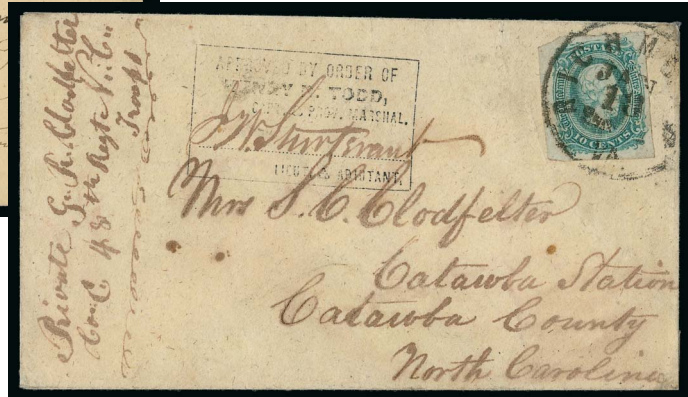 Private G. R. Clodfelter
Co. C 48th Regt N. C.
Troops
APPROVED BY ORDER OF
HENRY R. TODD,
CAPT. & PROV. MARSHAL.
J. W. Sturtevant
LIEUT. & ADJUTANT.
POSTAGE
10 CENTS
RICHMO
JAN
Mrs S. C. Clodfelter
Catawba Station
Catawba County
North Carolina